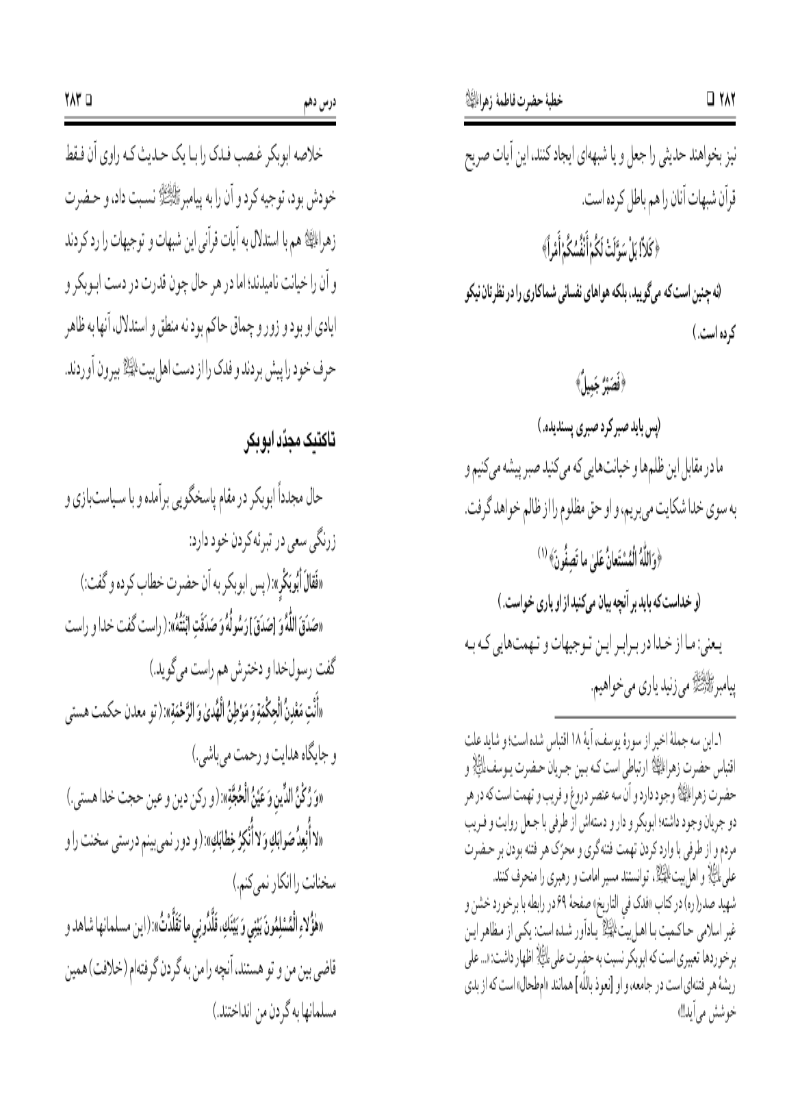 ۲۸۲ ❑ خطبهٔ حضرت فاطمهٔ زهرا
نیز بخواهند حدیثی را جعل و یا شبهه‌ای ایجاد کنند، این آیات صریح
قرآن شبهات آنان را هم باطل کرده است.
﴿كَلَّا! بَلْ سَوَّلَتْ لَكُمْ أَنْفُسُكُمْ أَمْراً﴾
(نه چنین است که می‌گویید، بلکه هواهای نفسانی شماکاری را در نظرتان نیکو
کرده است.)
﴿فَصَبْرٌ جَمِيلٌ﴾
(پس باید صبر کرد صبری پسندیده.)
ما در مقابل این ظلم‌ها و خیانت‌هایی که می‌کنید صبر پیشه می‌کنیم و
به سوی خدا شکایت می‌بریم، و او حق مظلوم را از ظالم خواهد گرفت.
﴿وَاللّٰهُ الْمُسْتَعانُ عَلىٰ ما تَصِفُونَ﴾(۱)
(و خداست که باید بر آنچه بیان می‌کنید از او یاری خواست.)
یعنی: ما از خدا در برابر این توجیهات و تهمت‌هایی که به
پیامبرﷺ می‌زنید یاری می‌خواهیم.
۱ـ این سه جملهٔ اخیر از سورهٔ یوسف، آیهٔ ۱۸ اقتباس شده است؛ و شاید علت
اقتباس حضرت زهرا ارتباطی است که بین جریان حضرت یوسف و
حضرت زهرا وجود دارد و آن سه عنصر دروغ و فریب و تهمت است که در هر
دو جریان وجود داشته؛ ابوبکر و دار و دسته‌اش از طرفی با جعل روایت و فریب
مردم و از طرفی با وارد کردن تهمت فتنه‌گری و محرّک هر فتنه بودن بر حضرت
علی و اهل‌بیت، توانستند مسیر امامت و رهبری را منحرف کنند.
شهید صدر(ره) در کتاب «فدک فی التاریخ» صفحهٔ ۶۹ در رابطه با برخورد خشن و
غیر اسلامی حاکمیت با اهل‌بیت یادآور شده است: یکی از مظاهر این
برخوردها تعبیری است که ابوبکر نسبت به حضرت علی اظهار داشت: «... علی
ریشهٔ هر فتنه‌ای است در جامعه، و او [نعوذ بالله] همانند «ام‌طحال» است که از بدی
خوشش می‌آید!!»
درس دهم ❑ ۲۸۳
خلاصه ابوبکر غصب فدک را با یک حدیث که راوی آن فقط
خودش بود، توجیه کرد و آن را به پیامبرﷺ نسبت داد، و حضرت
زهرا هم با استدلال به آیات قرآنی این شبهات و توجیهات را رد کردند
و آن را خیانت نامیدند؛ اما در هر حال چون قدرت در دست ابوبکر و
ایادی او بود و زور و چماق حاکم بود نه منطق و استدلال، آنها به ظاهر
حرف خود را پیش بردند و فدک را از دست اهل‌بیت بیرون آوردند.
تاکتیک مجدّد ابوبکر
حال مجدداً ابوبکر در مقام پاسخگویی برآمده و با سیاست‌بازی و
زرنگی سعی در تبرئه کردن خود دارد:
«فَقالَ أَبُوبَكْرٍ»: (پس ابوبکر به آن حضرت خطاب کرده و گفت:)
«صَدَقَ اللّٰهُ وَ [صَدَقَ] رَسُولُهُ وَ صَدَقَتِ ابْنَتُهُ»: (راست گفت خدا و راست
گفت رسول‌خدا و دخترش هم راست می‌گوید.)
«أَنْتِ مَعْدِنُ الْحِكْمَةِ وَ مَوْطِنُ الْهُدىٰ وَ الرَّحْمَةِ»: (تو معدن حکمت هستی
و جایگاه هدایت و رحمت می‌باشی.)
«وَ رُكْنُ الدِّينِ وَ عَيْنُ الْحُجَّةِ»: (و رکن دین و عین حجت خدا هستی.)
«لا أُبْعِدُ صَوابَكِ وَ لا أُنْكِرُ خِطابَكِ»: (و دور نمی‌بینم درستی سخنت را و
سخنانت را انکار نمی‌کنم.)
«هٰؤُلاءِ الْمُسْلِمُونَ بَيْنِي وَ بَيْنَكِ، قَلَّدُونِي ما تَقَلَّدْتُ»: (این مسلمانها شاهد و
قاضی بین من و تو هستند، آنچه را من به گردن گرفته‌ام (خلافت) همین
مسلمانها به گردن من انداختند.)